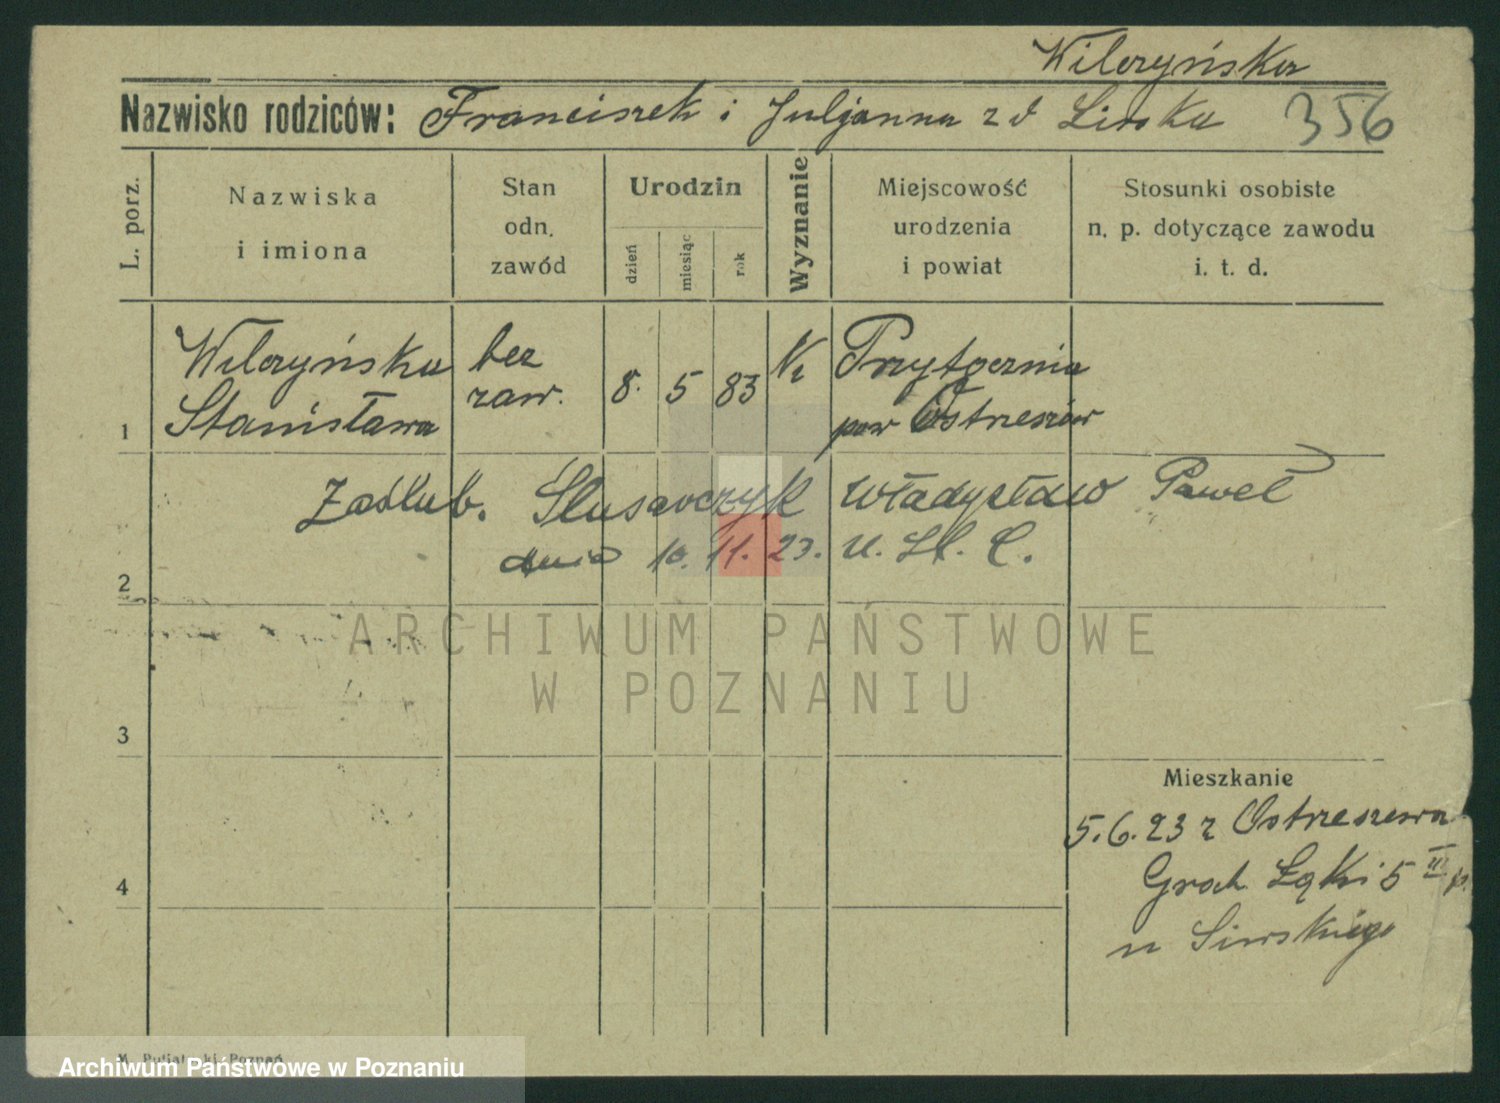 Wilczyńska
Nazwisko rodziców: Franciszek i Juljanna z d 356
L. porz.
Nazwiska
i imiona
Stan
odn.
zawód
Urodzin
dzień
miesiąc
rok
Wyznanie
Miejscowość
urodzenia
i powiat
Stosunki osobiste
n. p. dotyczące zawodu
i. t. d.
1 Wilczyńska bez 8. 5 83 Przytocznia
Stanisława zaw. pow Ostrzeszów
2 Zaślub. Ślusarczyk Władysław Paweł
dnia 10. 11. 23. U. St. C.
ARCHIWUM PAŃSTWOWE
W POZNANIU
3
4
Mieszkanie
5.6.23 z Ostrzeszowa
Groch. Łąki 5 III p.
u
Poznań
Archiwum Państwowe w Poznaniu